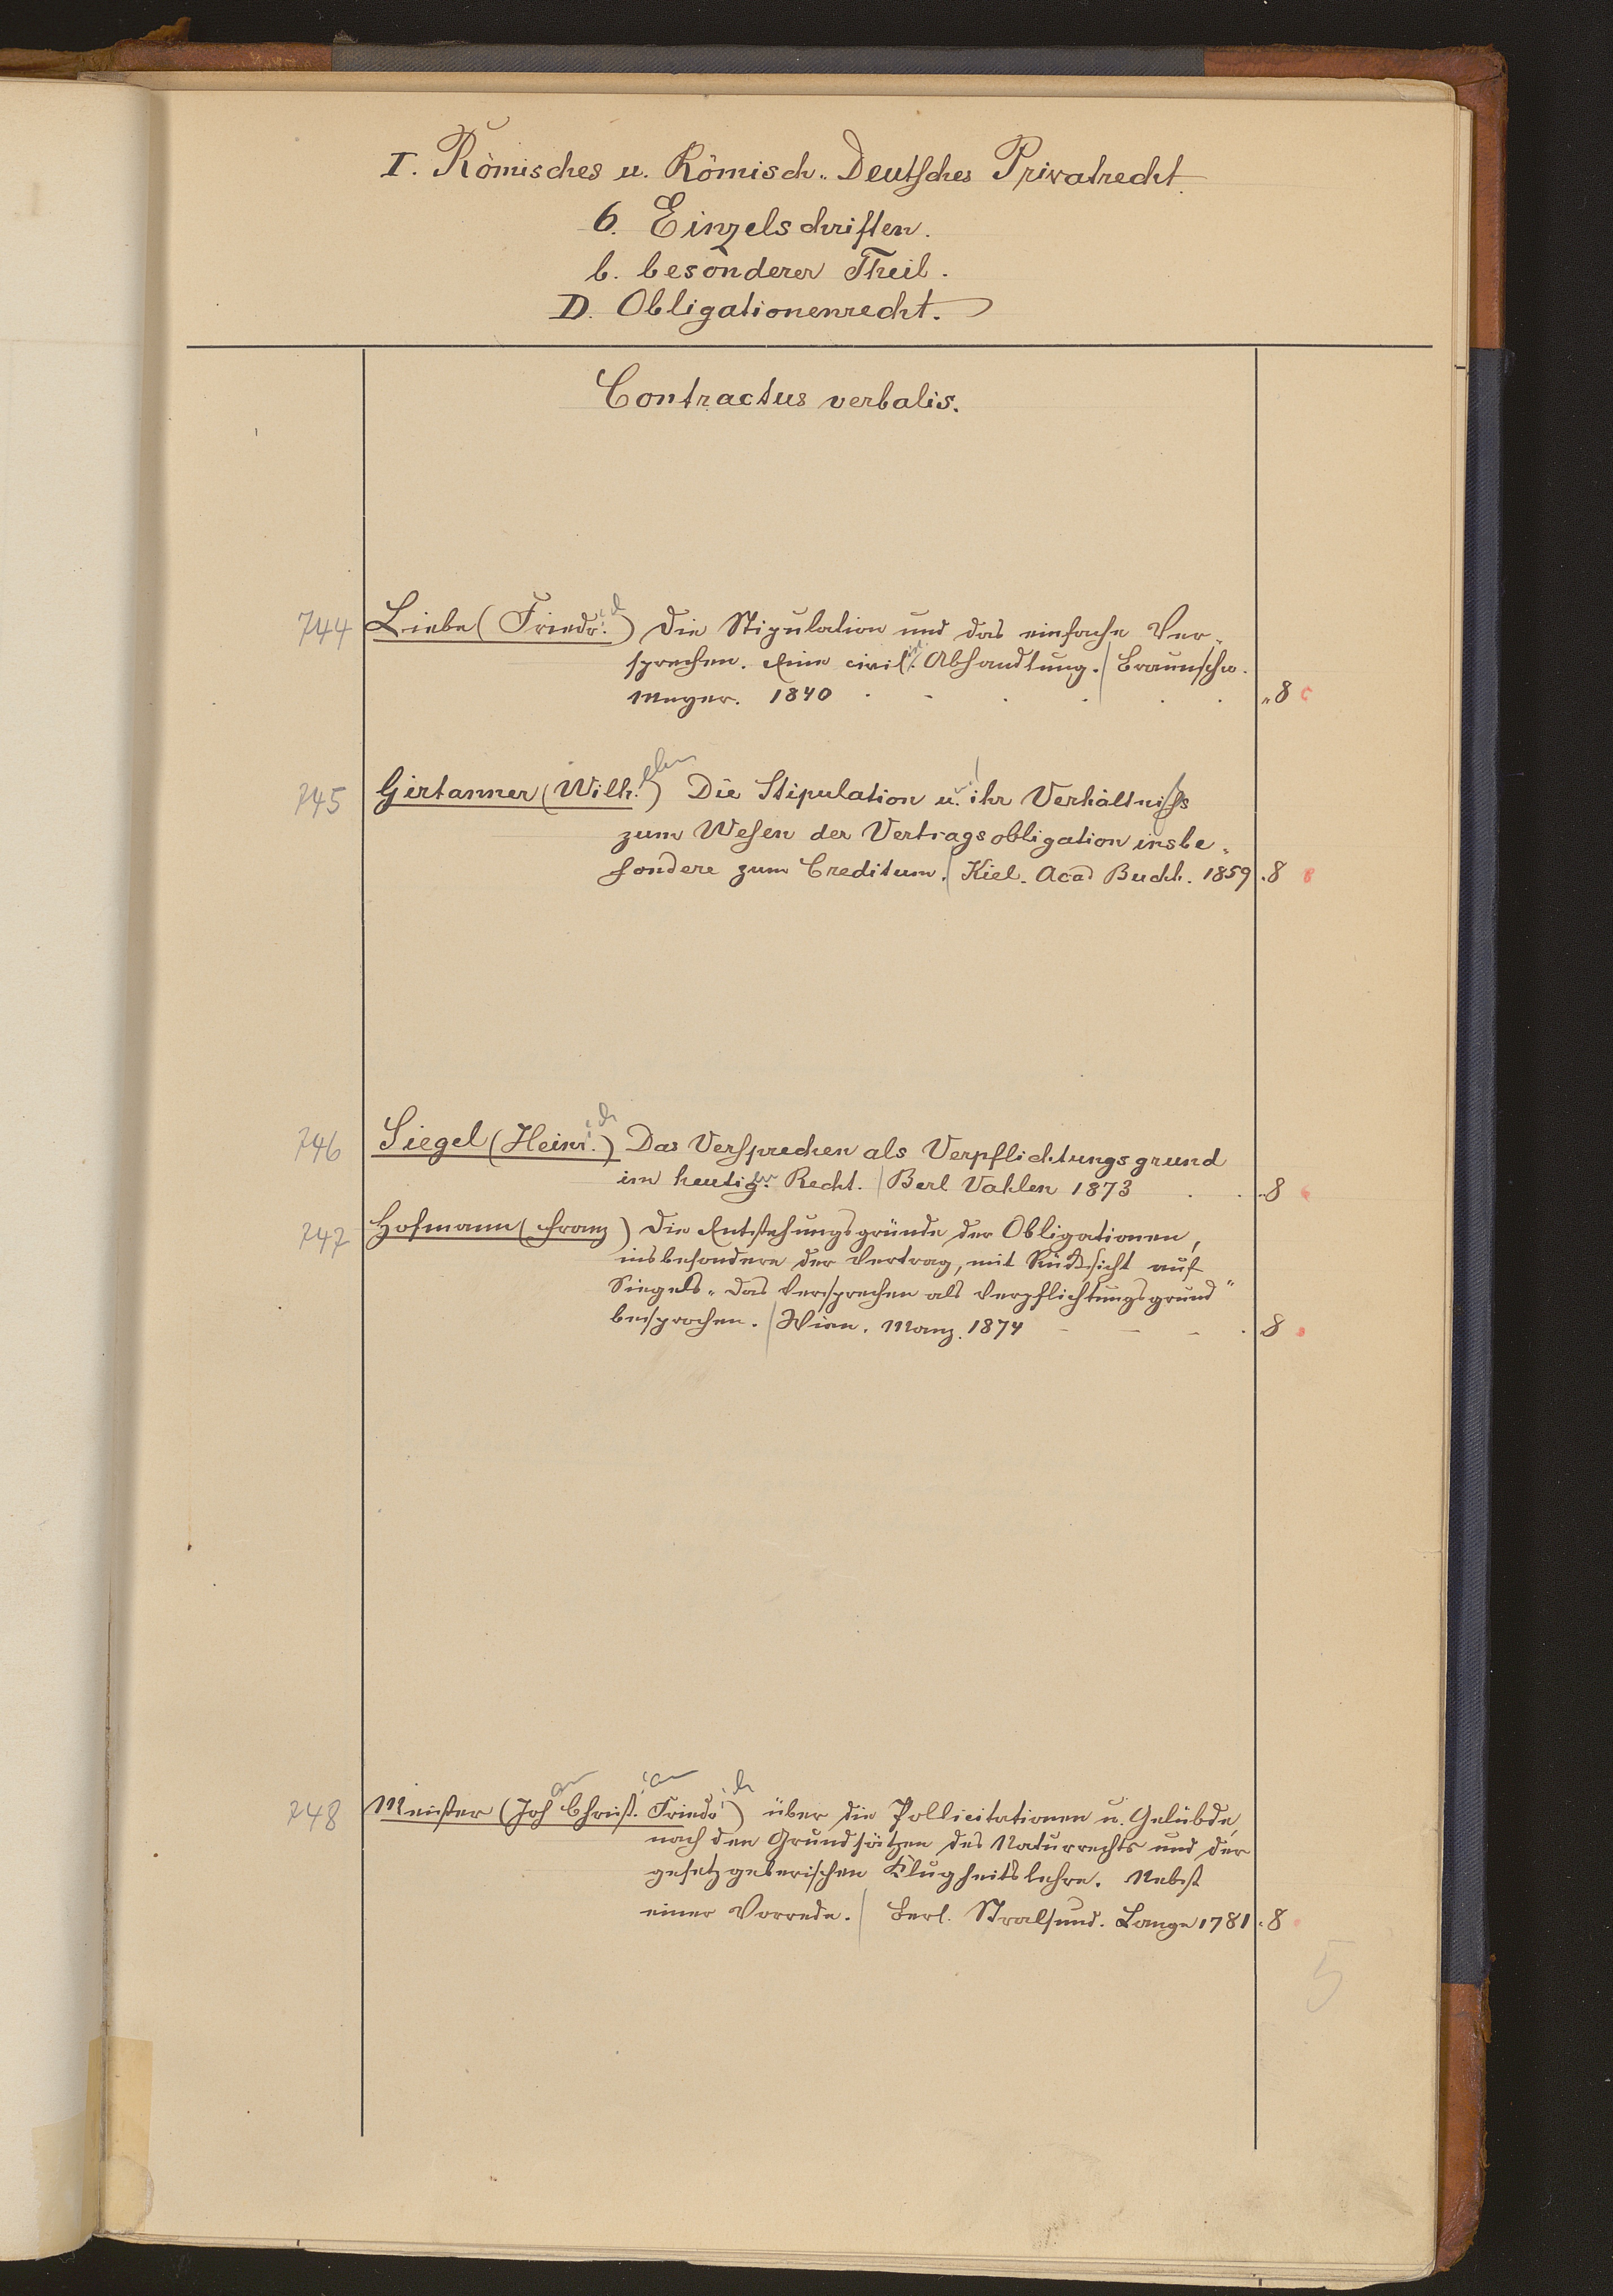 I. Römisches u. Römisch-Deutsches Privatrecht.
6. Einzelschriften.
b. besonderer Theil.
D. Obligationenrecht.
Contractus verbalis.
744 Liebe (Friedr.ich) Die Stipulation und das einfache Ver-
sprechen. Eine civil.ist. Abhandlung. / Braunschw.
Meyer. 1840 . . . . . . „ 8
745 Girtanner (Wilh.elm) Die Stipulation u. ihr Verhältniss
zum Wesen der Vertragsobligation insbe-
sondere zum Creditum. / Kiel. Acad Buchh. 1859 . 8
746 Siegel (Heinr.ich) Das Versprechen als Verpflichtungsgrund
im heutig.en Recht. / Berl Vahlen 1873 . . „ 8
747 Hofmann (Franz) Die Entstehungsgründe der Obligationen,
insbesondere der Vertrag, mit Rücksicht auf
Siegels „Das Versprechen als Verpflichtungsgrund"
besprochen. / Wien. Manz. 1874 - - - . 8
748 Meister (Johann Christ.ian Friedrich) über die Pollicitationen u. Gelübde,
nach den Grundsätzen des Naturrechts und der
gesetzgeberischen Klugheitslehre. Nebst
einer Vorrede. / Berl. Stralsund. Lange 1781 . 8
5